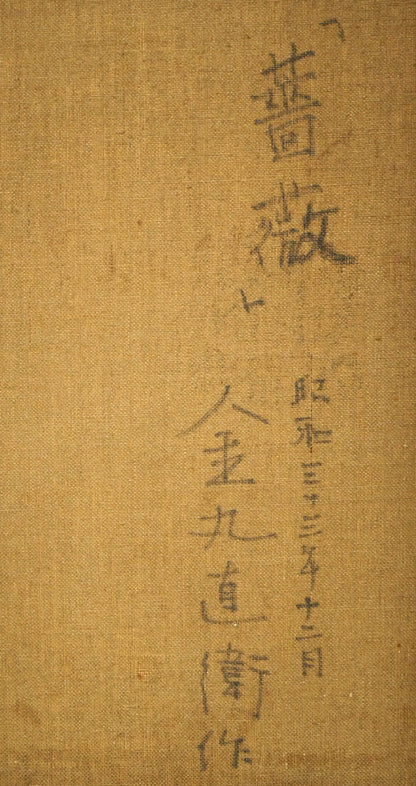 「薔薇」
昭和三十三年十二月
金丸直衛作